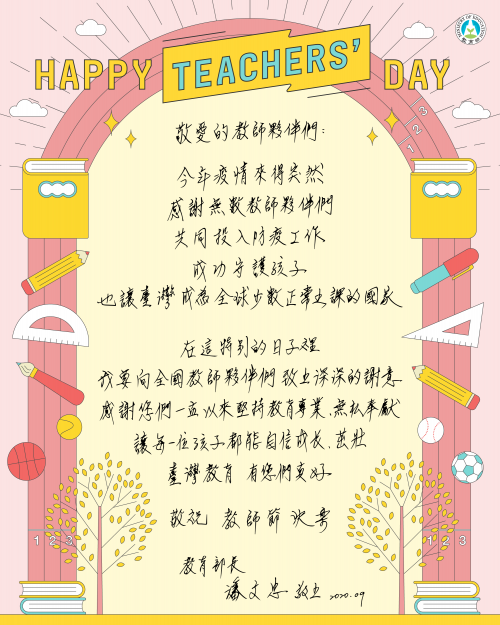 HAPPY TEACHERS' DAY
敬愛的教師夥伴們:
今年疫情來得突然
感謝無數教師夥伴們
共同投入防疫工作
成功守護孩子
也讓臺灣成為全球少數正常上課的國家
在這特別的日子裡
我要向全國教師夥伴們致上深深的謝意
感謝您們一直以來堅持教育專業、無私奉獻
讓每一位孩子都能自信成長、茁壯
臺灣教育 有您們真好
敬祝 教師節 快樂
教育部長
潘文忠 敬上 2020.09
3
2
1
1 2 3
1 2 3